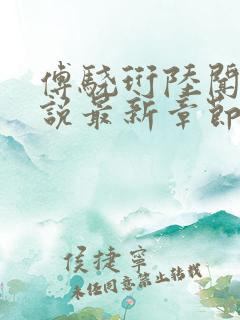 傅骁珩陆闻
说最新章节
侯捷宁
未经同意禁止转载